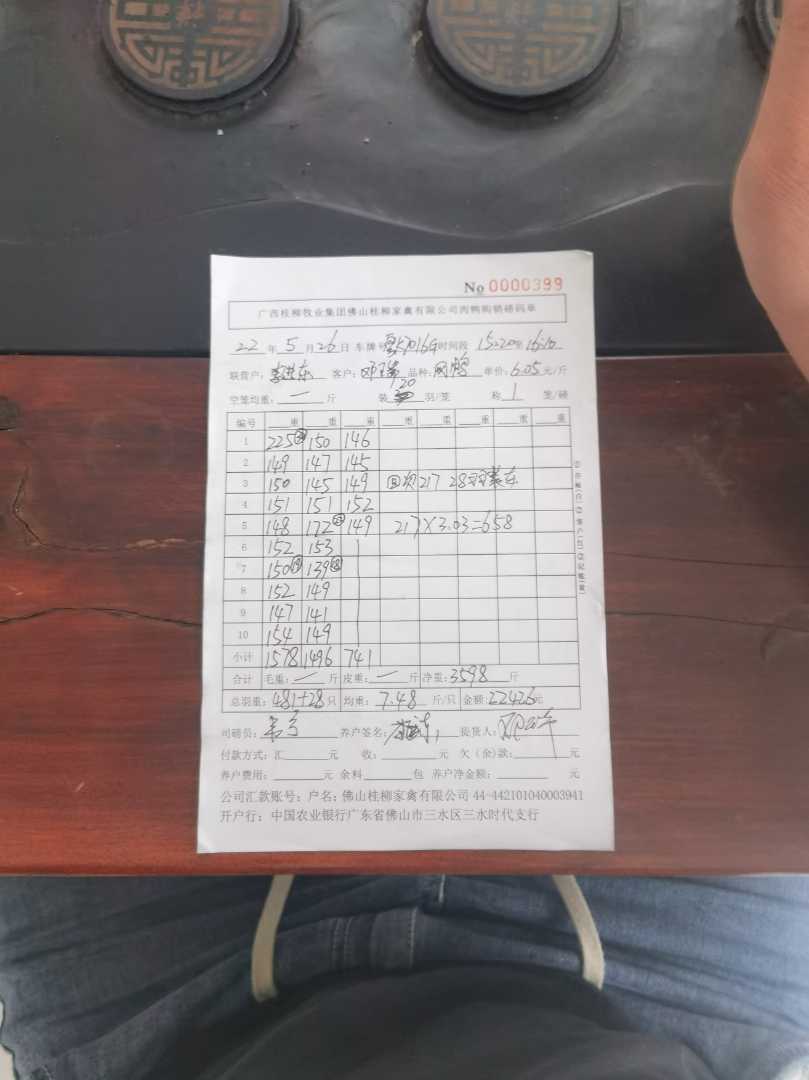 No 0000399
广西桂柳牧业集团佛山桂柳家禽有限公司肉鸭购销磅码单
22 年 5 月 26 日 车牌号 时间段 15:20至16:10
联营户: 李进东 客户: 品种: 单价: 6.05 元/斤
空笼均重: 一 斤 装 20 羽/笼 称 1 笼/磅
编号 重 重 重 重 重 重 重 重
1 225 150 146
2 149 147 145
3 150 145 149 217 28
4 151 151 152
5 148 172 149 217×3.03=658
6 152 153
7 150 139
8 152 149
9 147 141
10 154 149
小计 1578 1496 741
合计 毛重: 一 斤 皮重: 一 斤 净重: 3598 斤
总羽重: 481+28 只 均重: 7.48 斤/只 金额: 22426 元
司磅员: 养户签名: 提货人:
付款方式: 汇 元 收: 元 欠(余)款: 元
养户费用: 元 余料 包 养户净金额: 元
公司汇款账号: 户名: 佛山桂柳家禽有限公司 44-442101040003941
开户行: 中国农业银行广东省佛山市三水区三水时代支行